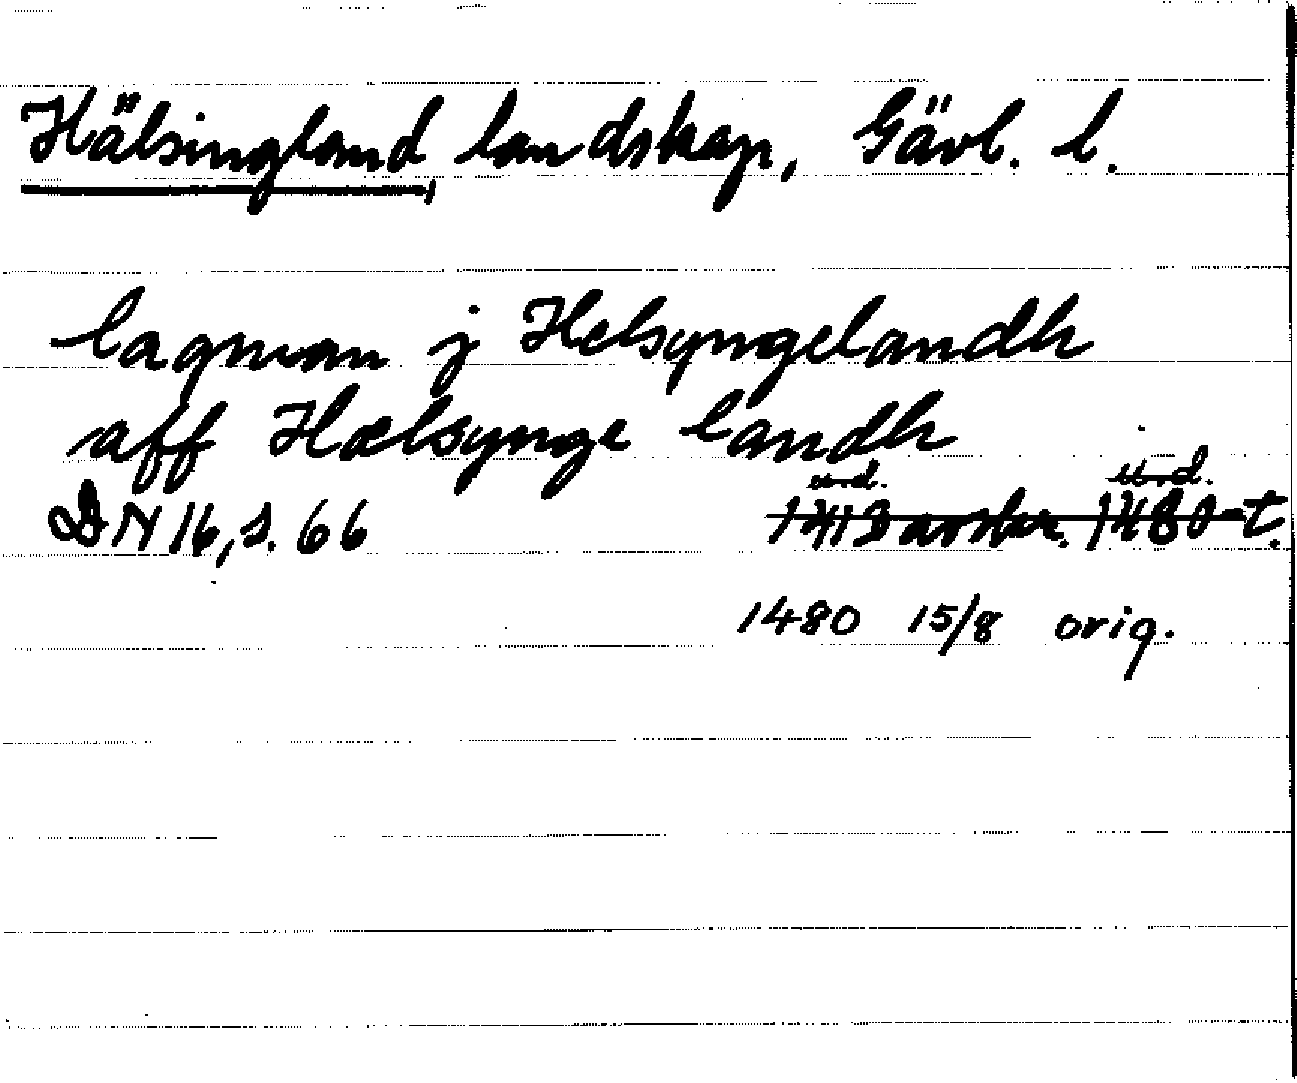 Hälsingland, landskap, Gävl. l.
lagman j Helsyngelandh
aff Hælsynge landh
u.d. u.d.
DN 16, s. 66 1413 avskr. 1480-t.
1480 15/8 orig.